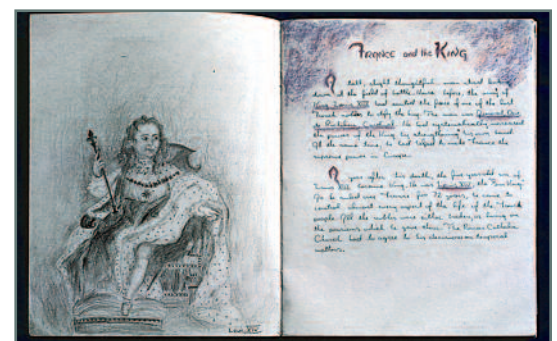 Louis XIV
FRANCE and the KING
A tall, slight thoughtful man stood looking
down at the field of battle. Here before, the army of
King Louis XIII had the force of one of the last
French nobles to defy the king. The man was
Cardinal. He had systematically increased
the power of the King by strengthening his own hand.
At the same time, he had helped to make France the
supreme power in Europe.
A year after his death, the five year old son of
Louis XIII became King. He was Louis XIV, the "Sun King"
As he ruled over France for 72 years, he came to
control almost every aspect of the life of the French
people. All the nobles were either broken, or living on
the pensions which he gave them. The Roman Catholic
Church had to agree to his decisions on temporal
matters.